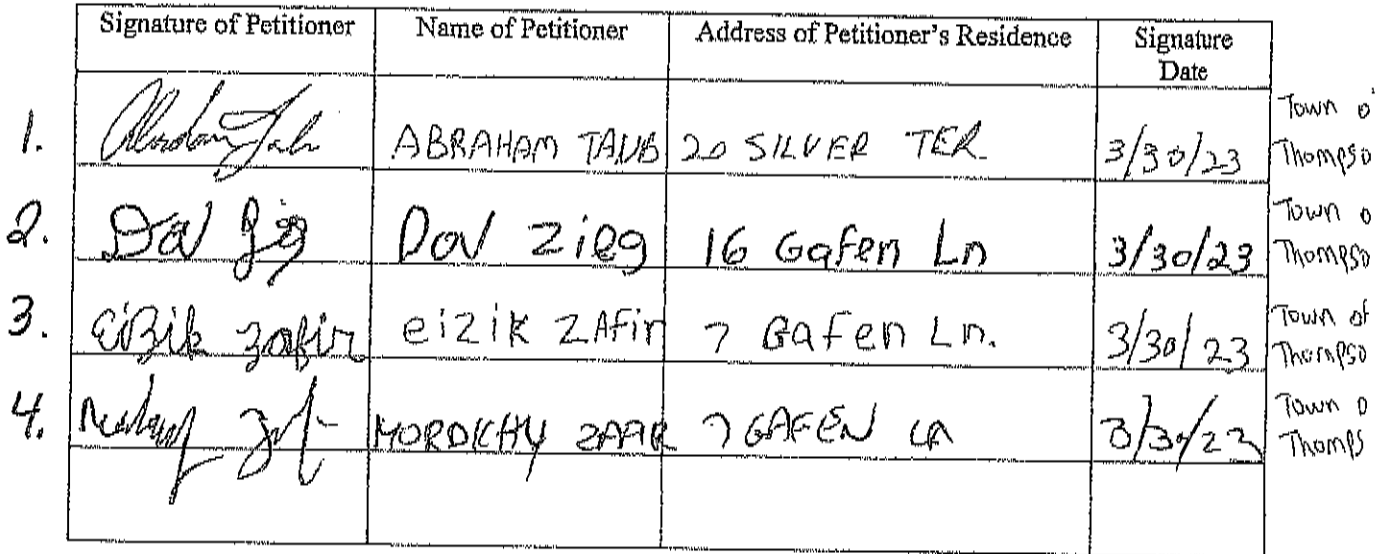 Signature of Petitioner Name of Petitioner Address of Petitioner's Residence Signature Date
1. ABRAHAM TAUB 20 SILVER TER. 3/30/23 Town o Thompso
2. Dov Zieg Dov Zieg 16 Gafen Ln 3/30/23 Town o Thompso
3. Eizik Zafir eizik ZAfir 7 Gafen Ln. 3/30/23 Town of Thompso
4. MORDICHY ZAAR 7 GAFEN LN 3/30/23 Town o Thomps